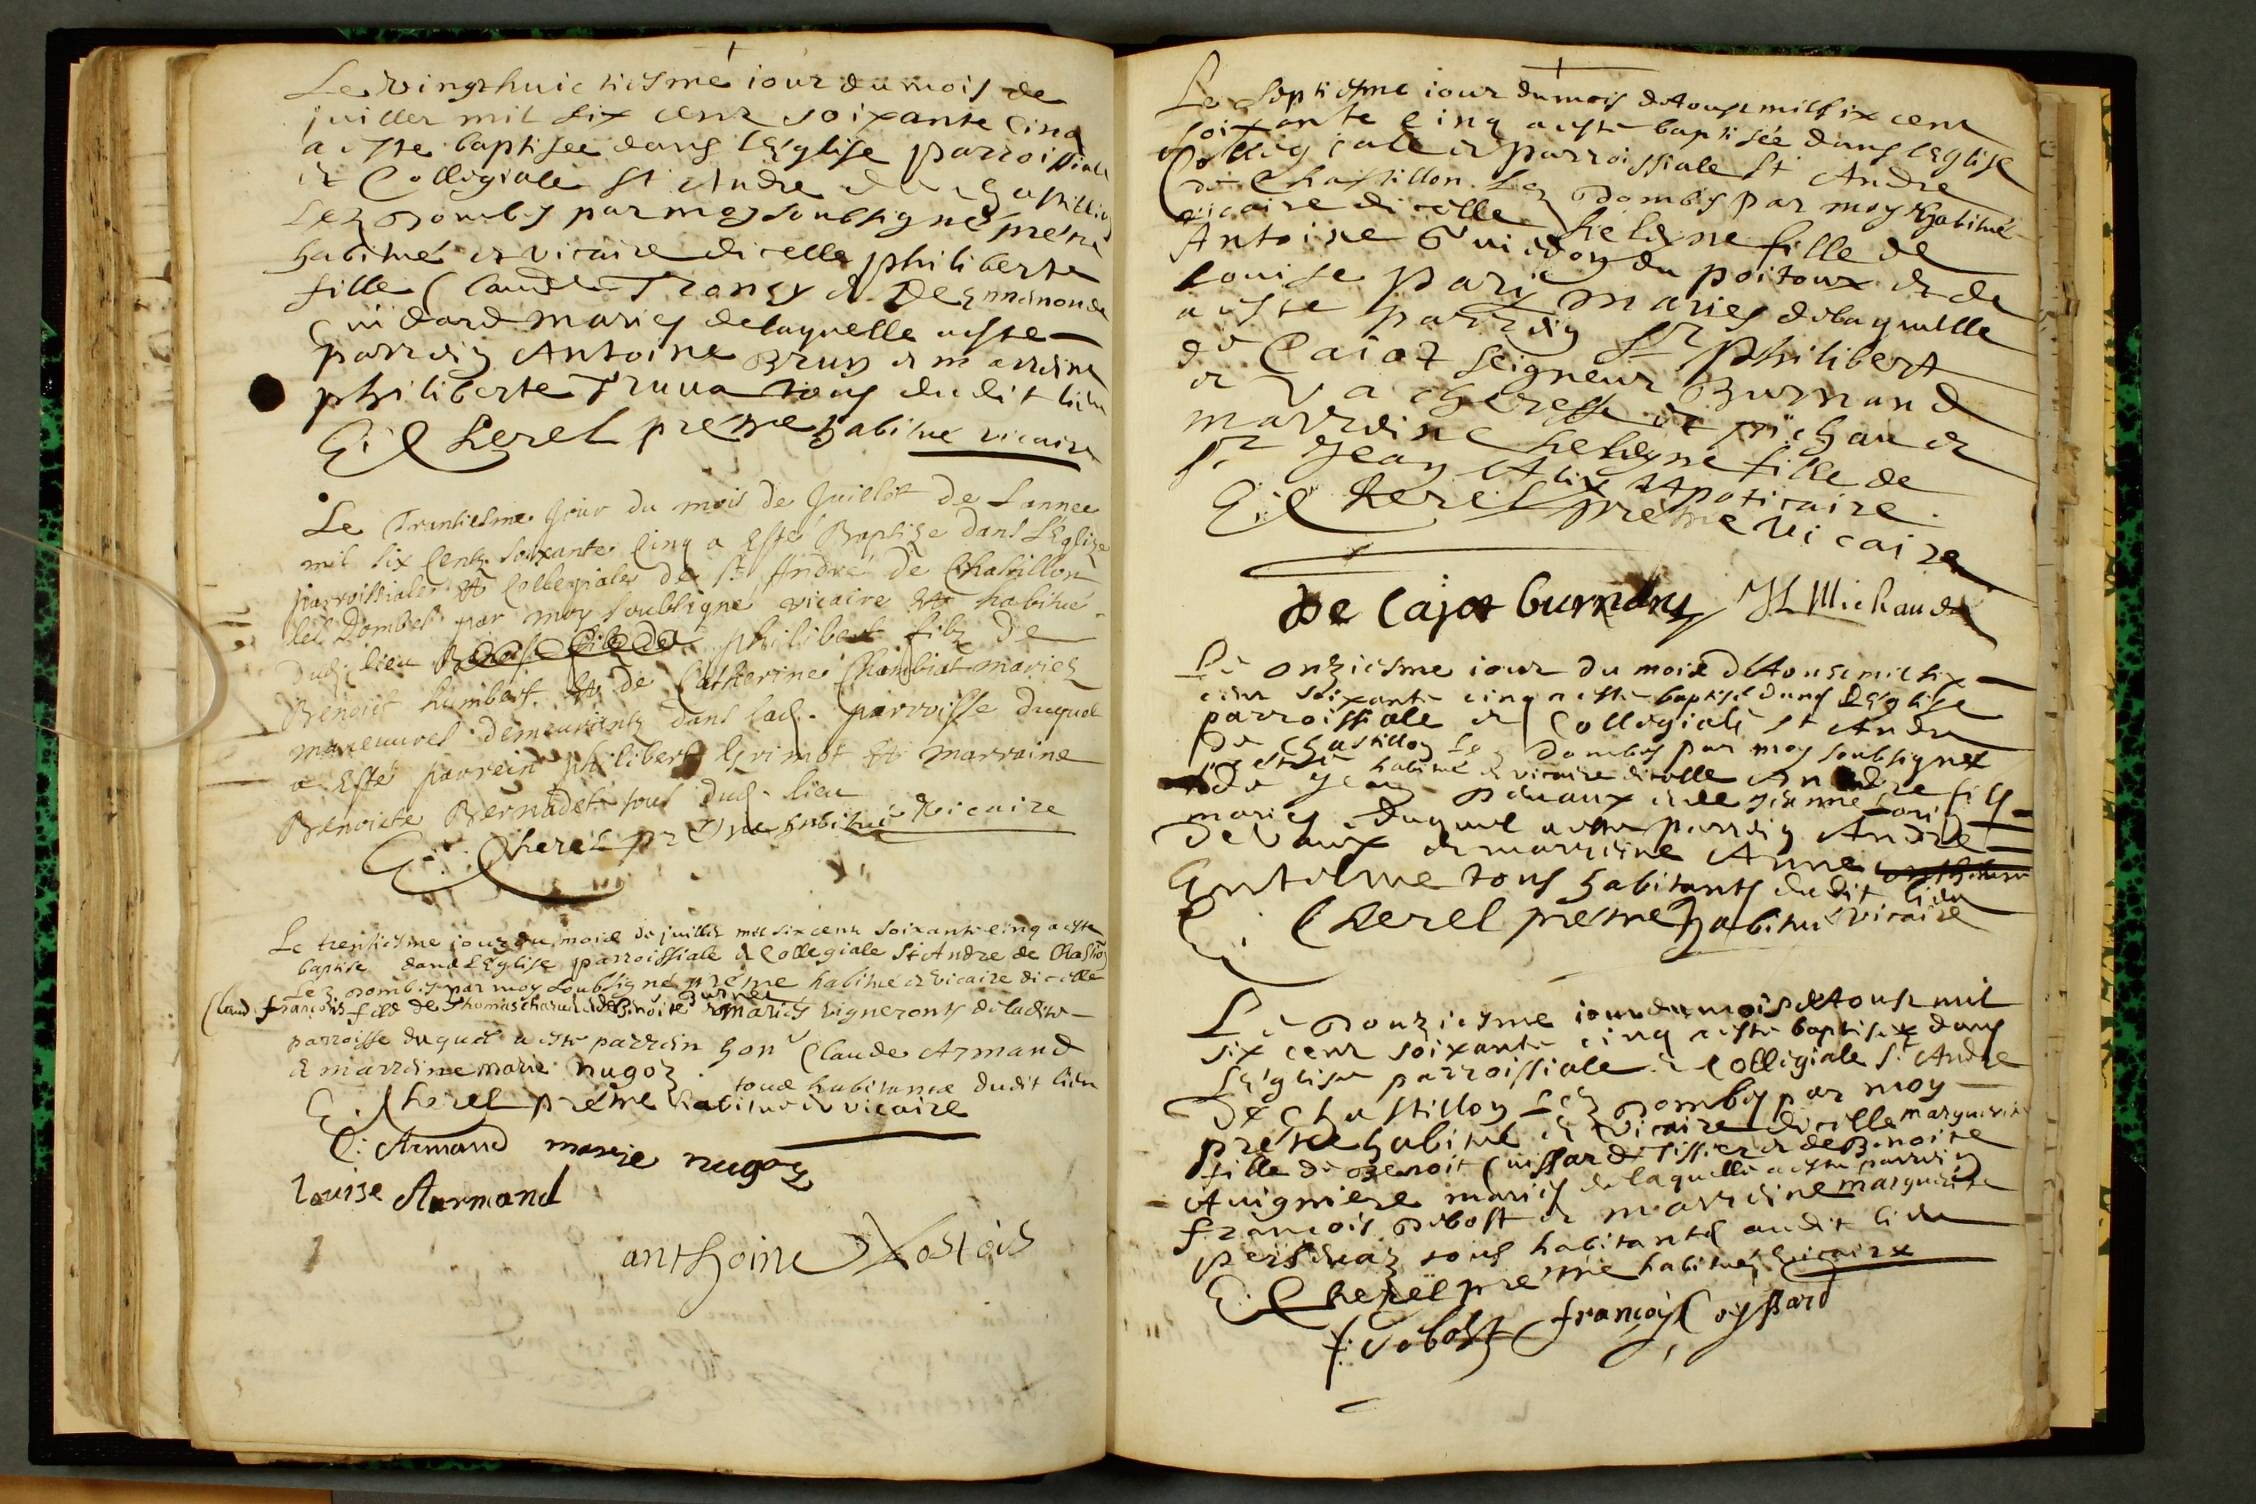 Le vingthuictiesme iour du mois de
juillet mil six cent soixante cinq
a este baptisee dans l'Eglise parroissiale
et Collegiale St Andre de Chastillon
Lez Dombes par moy soubsigné pretre
habitué et vicaire dicelle philiberte
fille Claude Trongy et De
Cuidard maries de laquelle a este
parrein Antoine Brun et marreine
philiberte Truua tous du dit lieu
E. Cherel pretre habitué vicaire
Le Trantiesme Jour du mois de Juillet De Lannee
mil six Centz soixante Cinq a Esté Baptize dans L'Eglize
parroissiale et Collegiale de St André de Chastillon
les Dombes par moy soubsigné vicaire et habitué
dud. lieu philibert filz De
Benoict humbert et de Catherine Chambiat mariez
maneuures demeurientz dans lad. parroisse duquel
a Esté parrein philibert Grimot et marraine
Benoicte Bernadet tous dud. lieu
E. Cherel pretre habitué Vicaire
Le trentiesme iour du mois de juillet mil six cent soixante cinq a este
baptise dans L'Eglise parroissiale et Collegiale St Andre de Chastillon
Lez Dombes par moy soubsigné pretre habitué et vicaire dicelle
Claud françois fils de Thomas et de Benoite maries vignerons de ladite
parroisse duquel a este parrein hon Claude Armand
et marreine marie nugoz
tous habitans dudit lieu
E. Cherel pretre habitué et vicaire
C. Armand marie nugoz
louise Aurmand
anthoine
Le Septiesme iour du mois d'Aoust mil six cent
soixante cinq a este baptisée dans l'Eglise
Collegiale et parroissiale St Andre
de Chastillon Lez Dombes par moy habitué
vicaire dicelle heleyne fille de
Antoine Guidoz du poitoux et de
Louise pary maries de laquelle
a este parrein Sr philibert
de Caiot Seigneur Burnand
et Vacheresse et et
marreine heleyne fille de
Sr Jean Alix Apoticaire.
E. Cherel pretre Vicaire
De Cajot burnand H Michaud
Le onziesme iour du mois d'Aoust mil six
cent soixante cinq a este baptisé dans L'Eglise
parroissiale et Collegiale St Andre
de Chastillon Lez Dombes par moy soubsigné
pretre habitué et vicaire dicelle Andre fils
de Jean Deuaux et de
maries duquel a este parrein Andre
Devaux et marreine Anne
Antelme tous habitants dudit lieu
E. Cherel pretre habitué vicaire
Le Douziesme iour du mois d'Aoust mil
six cent soixante cinq a este baptisee dans
L'Eglise parroissiale et Collegiale St Andre
De Chastillon Lez Dombes par moy
pretre habitué et vicaire dicelle marguerite
fille de Benoit Cuissard Tissier et de Benoite
Auigniere maries de laquelle a este parrein
françois Debost et marreine marguerite
tous habitants audit lieu
E. Cherel pretre habitué vicaire
f. Debost françois Coyssard